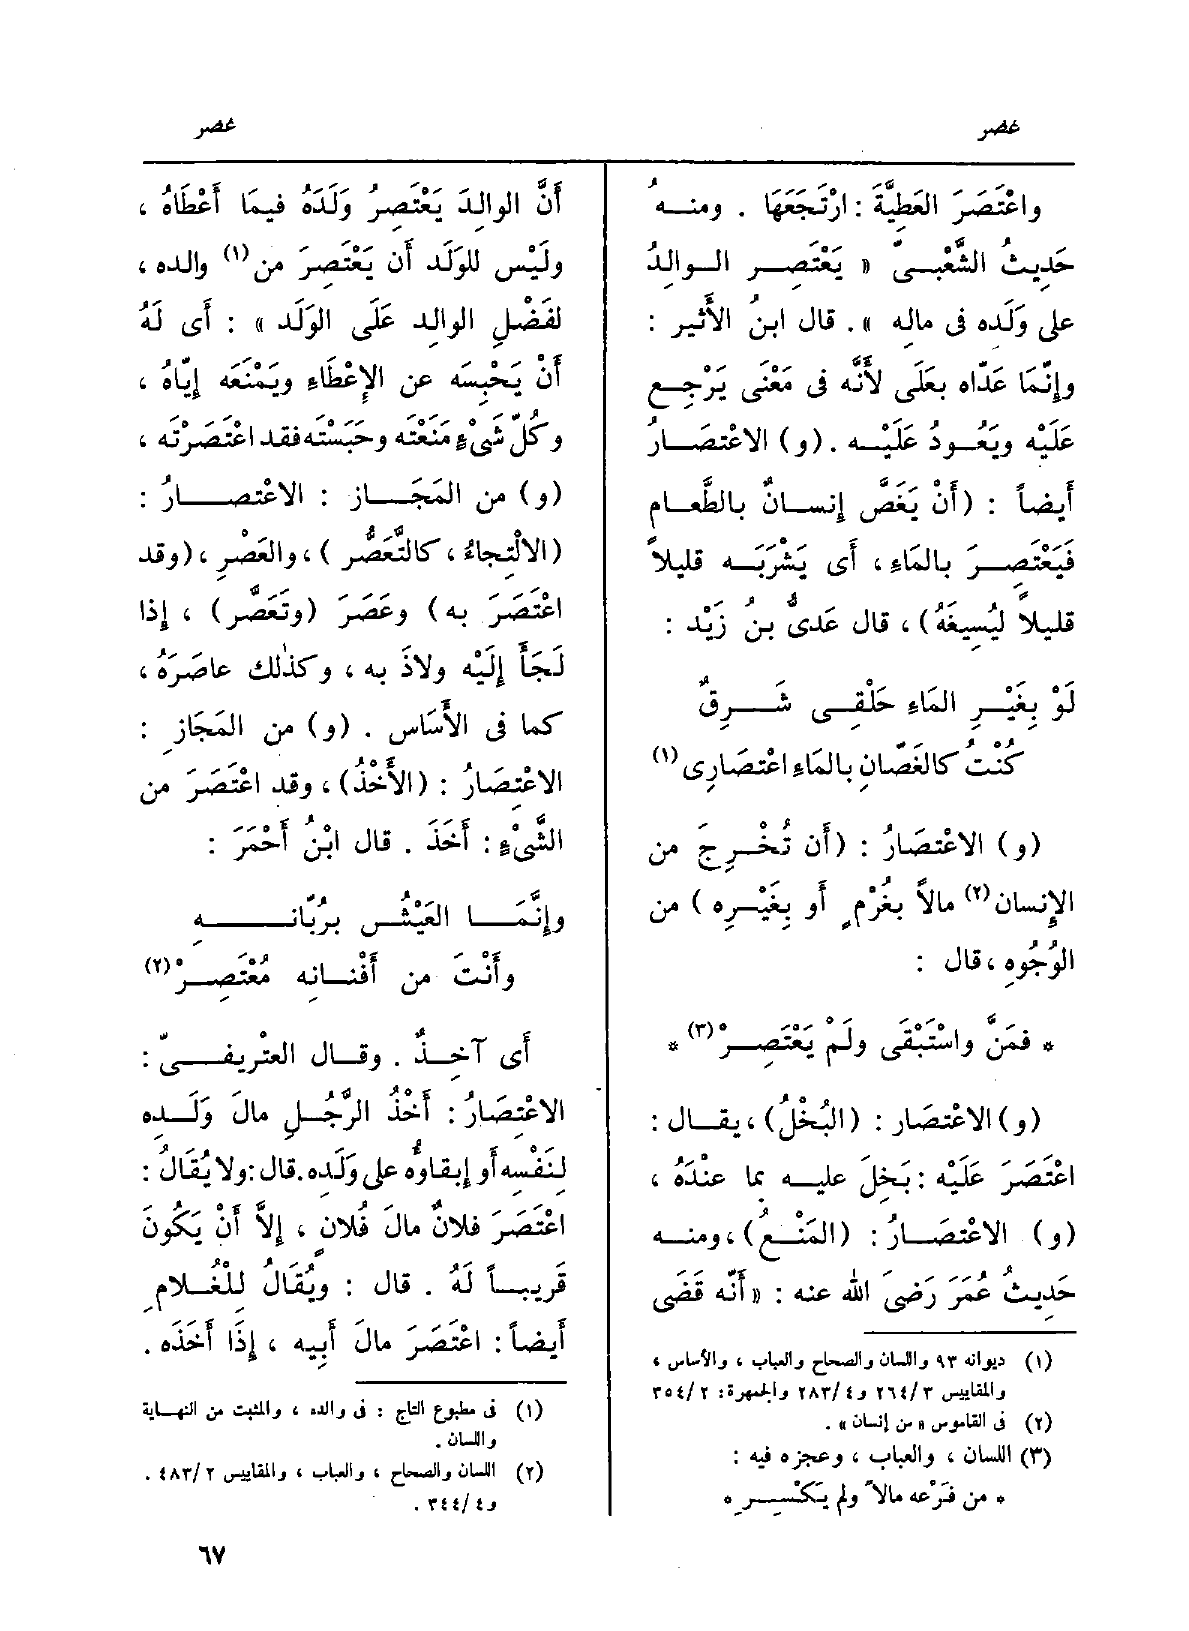 عصر
عصر
واعْتَصَرَ العَطِيَّةَ : ارْتَجَعَهَا . ومنه
حَدِيثُ الشَّعْبىّ « يَعْتَصِر الوالِدُ
على وَلَده فى ماله » . قال ابنُ الأَثير :
وإِنَّمَا عَدّاه بعَلَى لأَنَّه فى مَعْنَى يَرْجِع
عَلَيْه ويَعُودُ عَلَيْه . (و) الاعْتِصَارُ
أَيضاً : (أَنْ يَغَصَّ إِنسانٌ بالطَّعام
فَيَعْتَصِرَ بالمَاءِ ، أَى يَشْرَبَه قليلاً
قليلاً لِيُسِيغَهُ) ، قال عَدىُّ بنُ زَيْد :
لَوْ بِغَيْرِ المَاءِ حَلْقِى شَرِقٌ
كُنْتُ كالغَصّانِ بالمَاءِ اعْتِصَارِى (١)
(و) الاعْتِصَارُ : (أَن تُخْرِجَ من
الإِنسان (٢) مالاً بغُرْمٍ أَو بِغَيْرِه ) من
الوُجُوهِ ، قال :
* فمَنَّ واسْتَبْقَى ولَمْ يَعْتَصِرْ (٣) *
(و) الاعْتِصَار : (البُخْلُ) ، يقال :
اعْتَصَرَ عَلَيْه : بَخِلَ عليه بما عنْدَهُ ،
(و) الاعْتِصَارُ : (المَنْعُ) ، ومنه
حَدِيثُ عُمَرَ رَضِىَ الله عنه : « أَنَّه قَضَى
(١) ديوانه ٩٣ واللسان والصحاح والعباب ، والأساس ،
والمقاييس ٣/٢٦٤ و٤/٢٨٣ والجمهرة: ٢/٣٥٤
(٢) فى القاموس « من إنسان » .
(٣) اللسان ، والعباب ، وعجزه فيه :
* من فَرْعه مالاً ولم يَكْسِرِ *
أَنَّ الوالِدَ يَعْتَصِرُ وَلَدَهُ فيمَا أَعْطَاهُ ،
ولَيْس للوَلَد أَن يَعْتَصِرَ من (١) والده ،
لفَضْلِ الوالِد عَلَى الوَلَد » : أَى لَهُ
أَنْ يَحْبِسَه عن الإِعْطَاءِ ويَمْنَعَه إِيّاهُ ،
وكُلّ شَىْءٍ مَنَعْتَه وحَبَسْتَه فقد اعْتَصَرْتَه ،
(و) من المَجَاز : الاعْتِصَارُ :
(الالْتِجاءُ ، كالتَّعَصُّرِ ) ، والعَصْرِ ، (وقد
اعْتَصَرَ به) وعَصَرَ (وتَعَصَّر) ، إِذا
لَجَأَ إِلَيْه ولاذَ به ، وكذٰلك عاصَرَهُ ،
كما فى الأَسَاس . (و) من المَجَازِ :
الاعْتِصَارُ : (الأَخْذُ) ، وقد اعْتَصَرَ من
الشَّىْءِ : أَخَذَ . قال ابْنُ أَحْمَرَ :
وإِنَّمَا العَيْشُ برُبّانِه
وأَنْتَ من أَفْنانه مُعْتَصِرْ (٢)
أَى آخِذٌ . وقال العتْرِيفىّ :
الاعْتِصَارُ : أَخْذُ الرَّجُلِ مالَ وَلَده
لنَفْسِه أَو إِبقاؤُه على وَلَده . قال : ولا يُقَالُ :
اعْتَصَرَ فلانٌ مالَ فُلانٍ ، إِلاَّ أَنْ يَكُونَ
قَرِيباً لَهُ . قال : ويُقَالُ لِلْغُلامِ
أَيضاً : اعْتَصَرَ مالَ أَبِيه ، إِذَا أَخَذَه .
(١) فى مطبوع التاج : فى والده ، والمثبت من النهاية
واللسان .
(٢) اللسان والصحاح ، والعباب ، والمقاييس ٢/٤٨٣ .
و٤/٣٤٤ .
٦٧